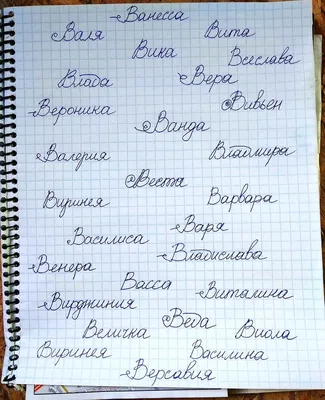 Ванесса
Валя Вита
Вика Всеслава
Влада Вера
Вероника Вивьен
Ванда
Валерия Владмира
Веста
Виринея Варвара
Варя
Василиса
Владислава
Венера
Васса
Виталина
Вирджиния
Веда
Величка Виола
Виринея Василина
Версавия